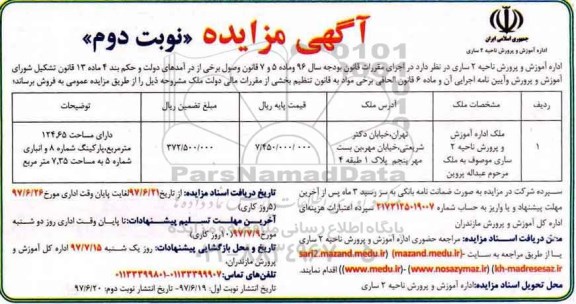 جمهوری اسلامی ایران
اداره آموزش و پرورش ناحیه ۲ ساری
آگهی مزایده «نوبت دوم»
اداره آموزش و پرورش ناحیه ۲ ساری در نظر دارد در اجرای مقررات قانون بودجه سال ۹۶ وماده ۵ و ۷ قانون وصول برخی از در آمدهای دولت و حکم بند ۴ ماده ۱۳ قانون تشکیل شورای
آموزش و پرورش وآیین نامه اجرایی آن و ماده ۶ قانون الحاقی برخی مواد به قانون تنظیم بخشی از مقررات مالی دولت ملک مشروحه ذیل را از طریق مزایده عمومی به فروش برساند؛
ردیف مشخصات ملک آدرس ملک قیمت پایه ریال مبلغ تضمین ریال توضیحات
۱ ملک اداره آموزش و پرورش ناحیه ۲ ساری موصوف به ملک مرحوم عبداله پروین تهران،خیابان دکتر شریعتی،خیابان مهربن بست مهر پنجم پلاک ۱ طبقه ۴ ۷/۴۵۰/۰۰۰/۰۰۰ ۳۷۲/۵۰۰/۰۰۰ دارای مساحت ۱۲۴,۶۵ مترمربع،پارکینگ شماره ۸ و انباری شماره ۵ به مساحت ۷,۳۵ متر مربع
سپرده شرکت در مزایده به صورت ضمانت نامه بانکی به سر رسید ۳ ماه پس از آخرین
مهلت پیشنهاد و یا واریز به حساب شماره ۲۱۷۳۱۲۵۰۱۹۰۰۷ سپرده اعتبارات هزینه‌ای
اداره کل آموزش و پرورش مازندران
محل دریافت اسناد مزایده: مراجعه حضوری اداره آموزش و پرورش ناحیه ۲ ساری
یا از طریق مراجعه به سایت (mazand.medu.ir) (sari2.mazand.medu.ir)
(kh-madresesaz.ir) (www.nosazymaz.ir) (www.medu.ir) اقدام نمایند.
محل تحویل اسناد مزایده: اداره آموزش و پرورش ناحیه ۲ ساری
تاریخ دریافت اسناد مزایده: از تاریخ ۹۷/۶/۲۱ لغایت پایان وقت اداری مورخ ۹۷/۶/۲۶
(۵ روز کاری)
آخرین مهلت تسلیم پیشنهادات: تا پایان وقت اداری روز دو شنبه
مورخ ۹۷/۷/۹
تاریخ و محل بازگشایی پیشنهادات: روز یک شنبه ۹۷/۷/۱۵ اداره کل آموزش و
پرورش مازندران.
تلفن‌های تماس: ۰۱۱۳۳۳۹۹۹۰۷-۰۱۱۳۳۳۹۹۸۰۱
تاریخ انتشار نوبت اول: ۹۷/۶/۱۹- تاریخ انتشار نوبت دوم: ۹۷/۶/۲۰
ParsNamadData